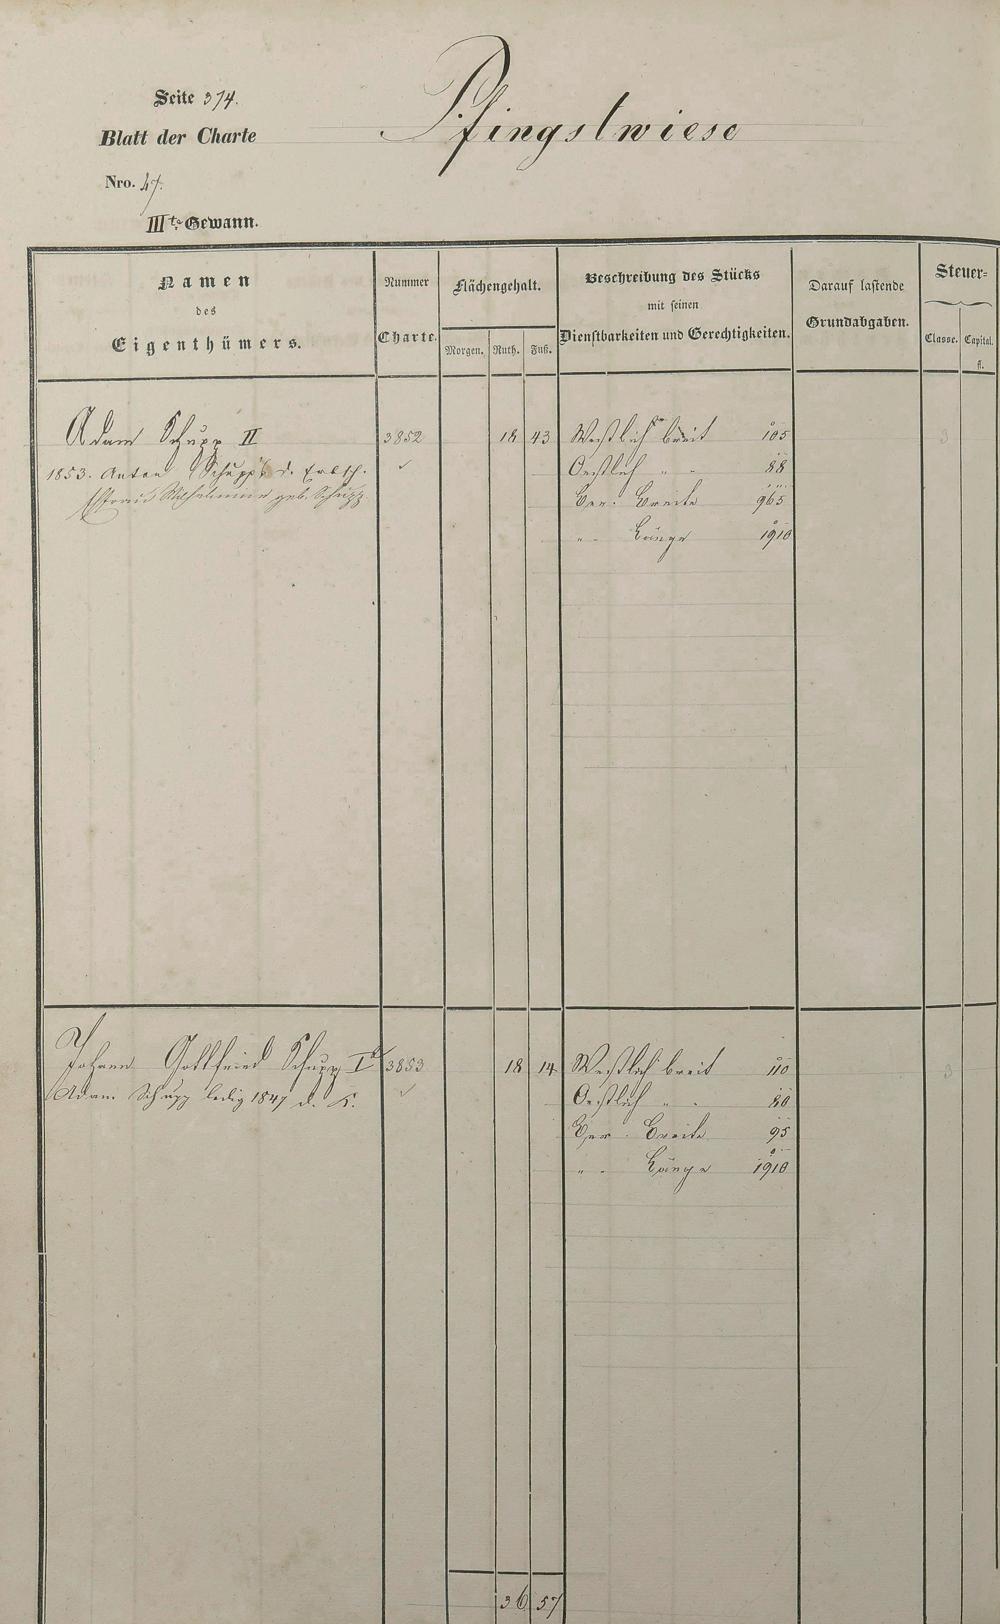 Seite 374.
Pfingstwiese
Blatt der Charte
Nro. 47.
IIIte Gewann.
Namen
des
Eigenthümers.
Nummer
Charte.
Flächengehalt.
Morgen. Ruth. Fuß.
Beschreibung des Stücks
mit seinen
Dienstbarkeiten und Gerechtigkeiten.
Darauf lastende
Grundabgaben.
Steuer-
Classe. Capital.
fl.
Adam Schupp II 3852 18 43 Westlich breit 105 3
1853. Anton Schupp's d. Erbth. Oestlich " - 88
Ehefrau Wilhelmine geb. Schupp. Ver. Breite 965
" - Länge 1910
Johann Gottfried Schupp Ir 3853 18 14 Westlich breit 110 3
Adam Schupp ledig 1847 d. K. Oestlich " - 80
Ver. Breite 95
" - Länge 1910
36 57